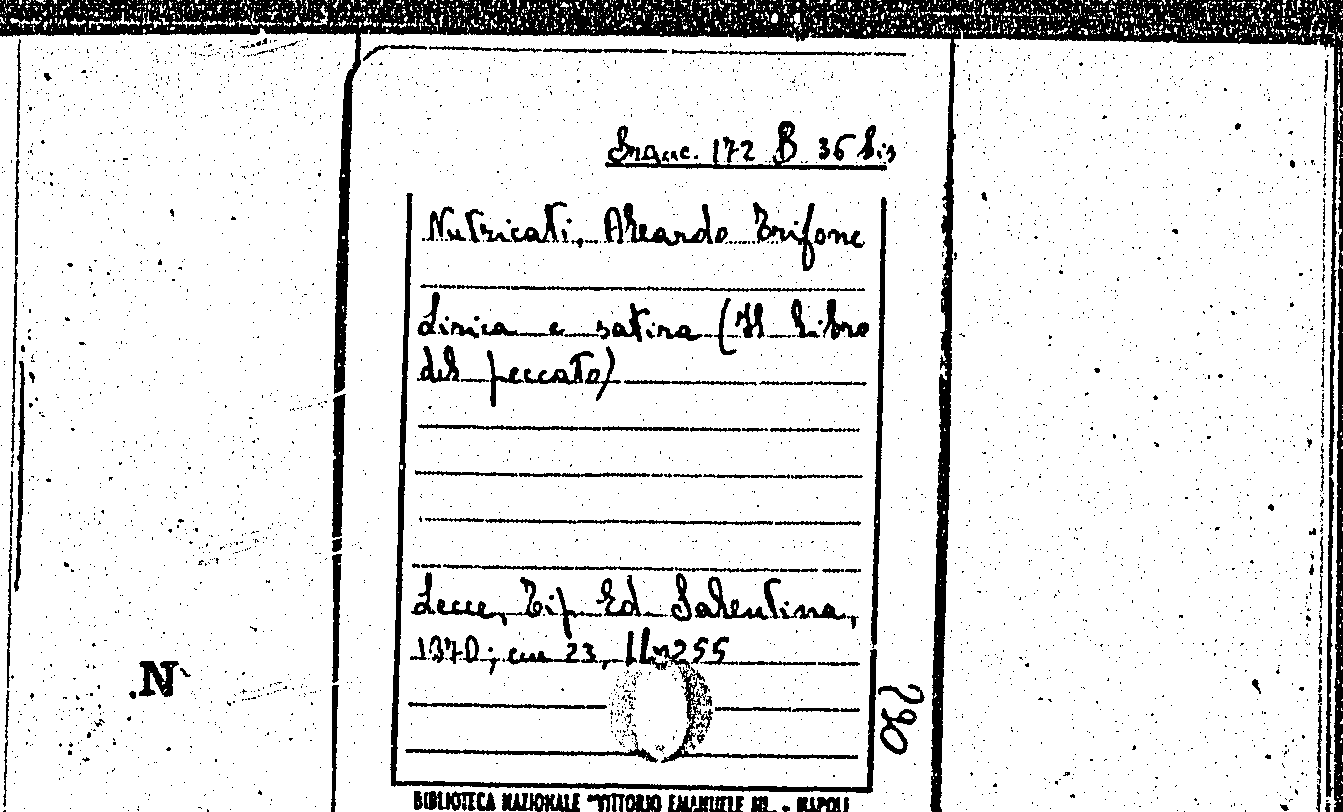 172 B 36 bis
Nutricati, Aleardo Trifone
Lirica e satira (Il libro
del peccato)
Lecce, Tip. Ed. Salentina,
1970; cm 23, pp. 255
.N
290
BIBLIOTECA NAZIONALE "VITTORIO EMANUELE III" - NAPOLI